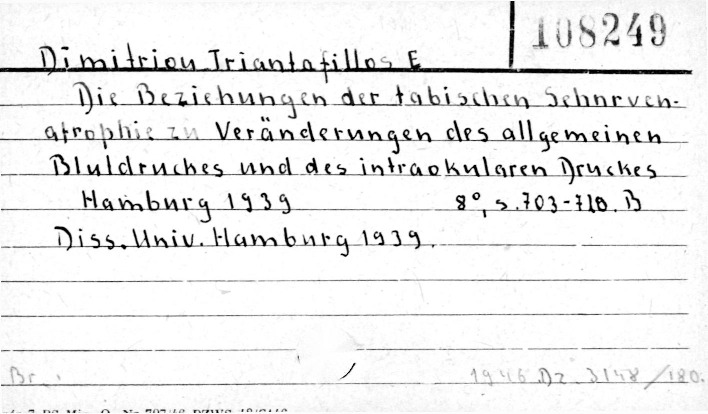 108249
Dimitriou Triantafillos E
Die Beziehungen der tabischen Sehnerven-
atrophie zu Veränderungen des allgemeinen
Blutdruckes und des intraokularen Druckes
Hamburg 1939 8°, s. 703-710. B
Diss. Univ. Hamburg 1939.
Br.
1946 Dz 3148/180.